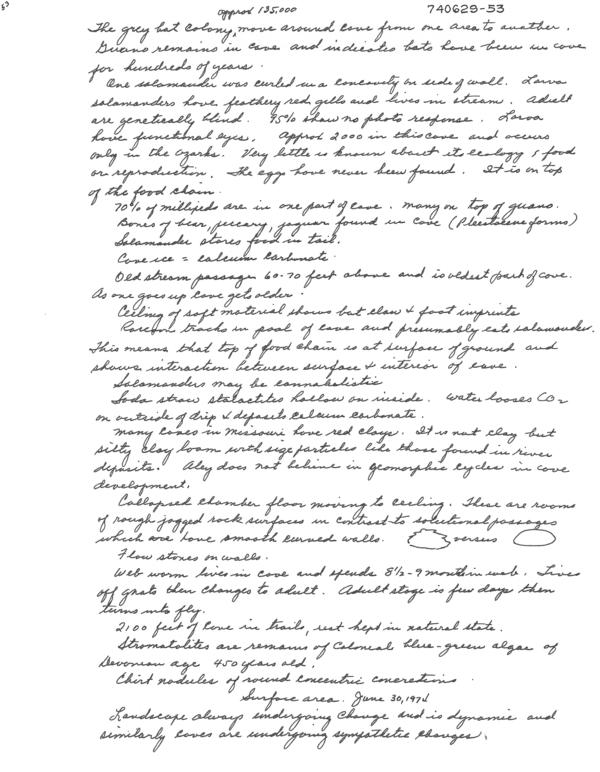 approx 135,000 740629-53
The grey bat colony, move around cave from one area to another.
Guano remains in cave and indicates bats have been in cave
for hundreds of years.
One salamander was curled in a concavity on side of wall. Larva
salamanders have feathery red gills and lives in stream. Adult
are genetically blind. 95% show no photo response. Larva
have functional eyes. Approx 2000 in this cave and occurs
only in the Ozarks. Very little is known about its ecology, food
or reproduction. The eggs have never been found. It is on top
of the food chain.
70% of millipeds are in one part of cave. Many on top of guano.
Bones of bear, peccary, jaguar found in cave (Pleistocene forms)
Salamander stores food in tail.
Cave ice = calcium carbonate.
Old stream passage 60-70 feet above and is oldest part of cave.
As one goes up cave gets older.
Ceiling of soft material shows bat claw & foot imprints
Racoon tracks in pool of cave and presumably eats salamander.
This means that top of food chain is at surface of ground and
shows interaction between surface & interior of cave.
Salamanders may be cannabalistic
Soda straw stalactites hollow on inside. Water looses CO2
on outside of drip & deposits calcium carbonate.
Many caves in Missouri have red clays. It is not clay but
silty clay loam with size particles like those found in river
deposits. Aley does not believe in geomorphic cycles in cave
development.
Collapsed chamber floor moving to ceiling. These are rooms
of rough jagged rock surfaces in contrast to solutional passages
which have smooth curved walls. versus
Flow stones on walls.
Web worm lives in cave and spends 8 1/2-9 months in web. Lives
off gnats then changes to adult. Adult stage is few days then
turns into fly.
2100 feet of cave in trails, rest kept in natural state.
Stromatolites are remains of colonial blue-green algae of
Devonian age 450 years old.
Chirt nodules of round concentric concretions.
Surface area. June 30, 1974
Landscape always undergoing change and is dynamic and
similarly caves are undergoing sympathetic changes.